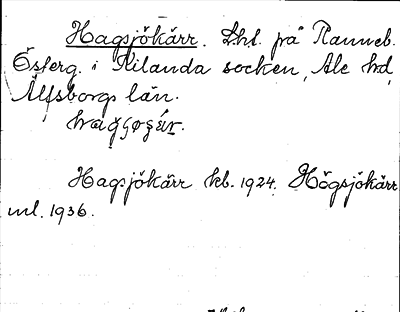 Hagsjökärr. Lht. på Ranneb.
Österg. i Kilanda socken, Ale hd,
Älfsborgs län.
Hagsjökärr kb. 1924. Högsjökärr
ml. 1936.